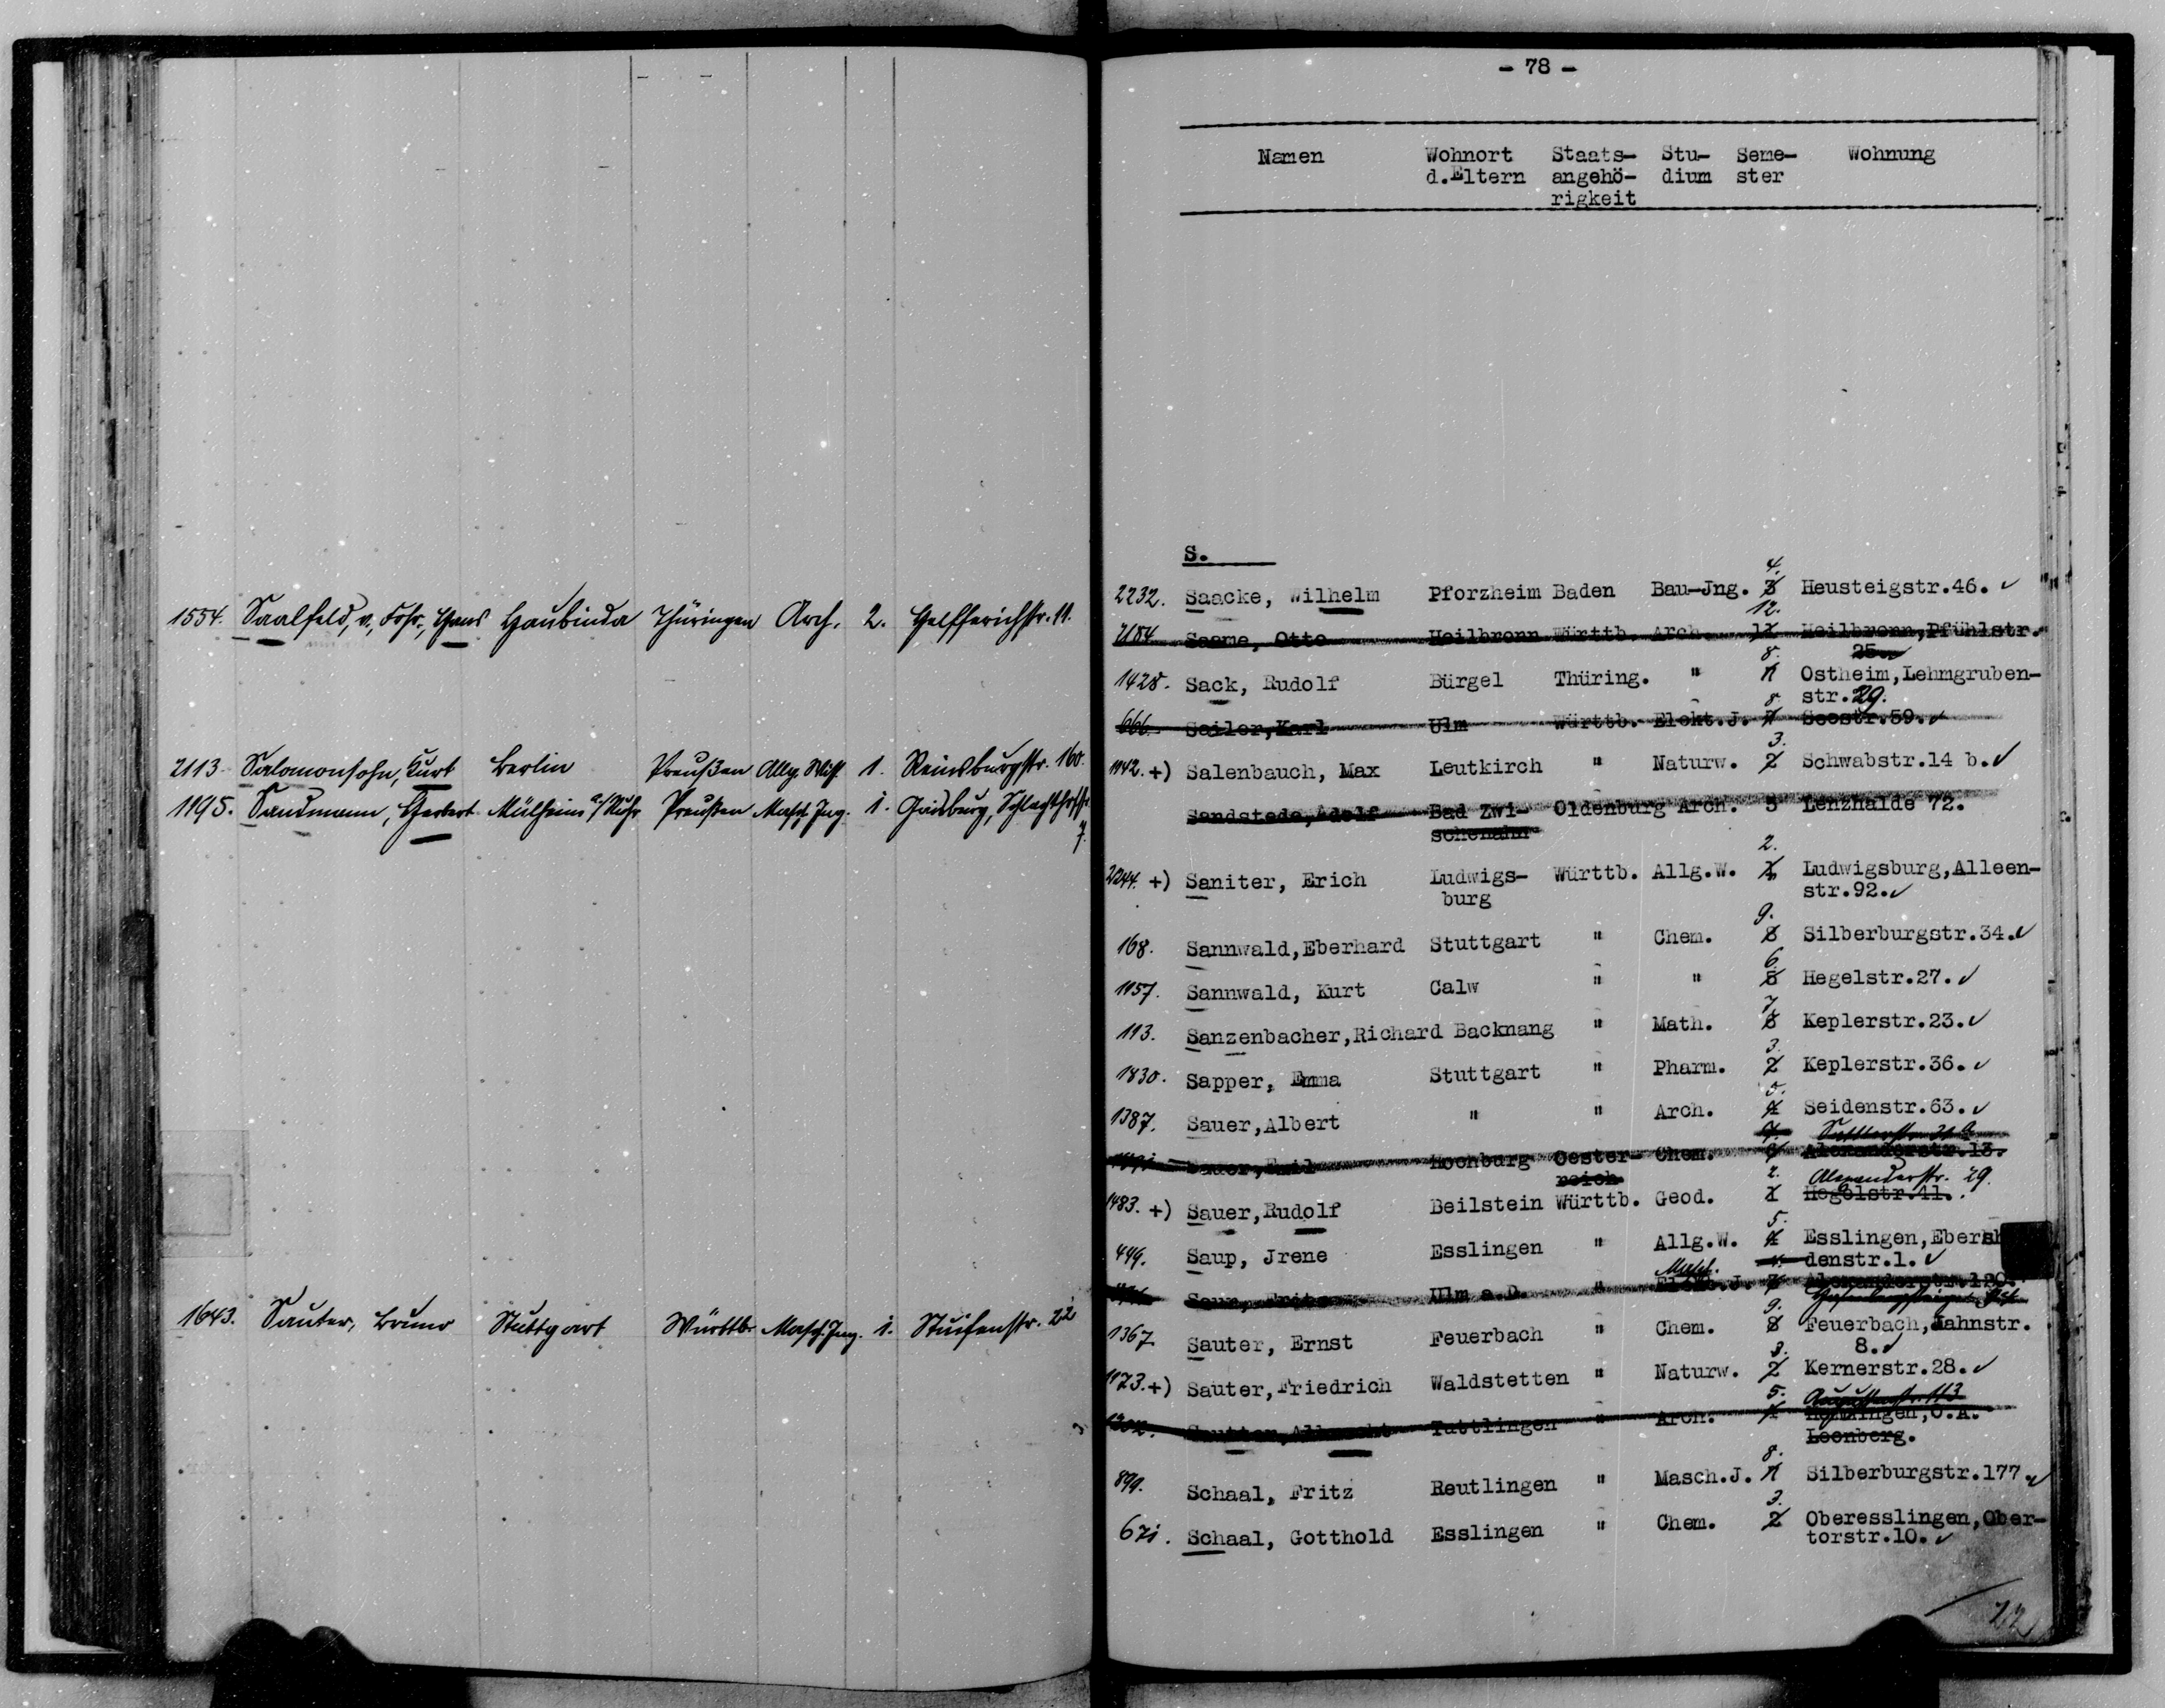 1554. Saalfeld, v., Frhr., Hans Haubinda Thüringen Arch. 2. Helfferichstr. 11.
2113. Salomonsohn, Kurt Berlin Preußen Allg. Wiss. 1. Reinsburgstr. 160.
1195. Sandmann, Herbert Mülheim a/Ruhr Preußen Masch. Ing. 1. Gaisburg, Schlachthofstr.
7.
1643. Sauter, Bruno Stuttgart Württb. Masch. Ing. 1. Stuifenstr. 22
- 78 -
Namen Wohnort Staats- Stu- Seme- Wohnung
d.Eltern angehö- dium ster
rigkeit
S.
4.
2232. Saacke, Wilhelm Pforzheim Baden Bau-Jng. 3 Heusteigstr.46.
12.
2184 Saame, Otto Heilbronn Württb. Arch. 11 Heilbronn,Pfühlstr.
8. 25.
1428. Sack, Rudolf Bürgel Thüring. " 7 Ostheim,Lehmgruben-
8. str.29.
666. Sailer,Karl Ulm Württb. Elekt.J. 7 Seestr.59.
3.
1142. +) Salenbauch, Max Leutkirch " Naturw. 2 Schwabstr.14 b.
Sandstede,Adolf Bad Zwi- Oldenburg Arch. 5 Lenzhalde 72.
schenahn
2.
2244. +) Saniter, Erich Ludwigs- Württb. Allg.W. 1 Ludwigsburg,Alleen-
burg str.92.
9.
168. Sannwald,Eberhard Stuttgart " Chem. 8 Silberburgstr.34.
6.
1157. Sannwald, Kurt Calw " " 5 Hegelstr.27.
7.
113. Sanzenbacher,Richard Backnang " Math. 6 Keplerstr.23.
3.
1830. Sapper, Emma Stuttgart " Pharm. 2 Keplerstr.36.
5.
1387. Sauer,Albert " " Arch. 4 Seidenstr.63.
7.
Sauer,Emil Hochburg Oester- Chem. 6 Alexanderstr.13.
reich
2. Alexanderstr. 29.
1483. +) Sauer,Rudolf Beilstein Württb. Geod. 1 Hegelstr.41.
5.
449. Saup, Jrene Esslingen " Allg.W. 4 Esslingen,Ebersh
denstr.1.
Masch.
Saur, Fritz Ulm a.D. " Elekt.J. Alexanderstr.120.
9.
1367. Sauter, Ernst Feuerbach " Chem. 8 Feuerbach,Jahnstr.
3. 8.
1173. +) Sauter,Friedrich Waldstetten " Naturw. 2 Kernerstr.28.
5. Augustenstr. 113
1302. Sautter,Albrecht Tuttlingen " Arch. 4 Hemmingen,O.A.
Leonberg.
8.
899. Schaal, Fritz Reutlingen " Masch.J. 7 Silberburgstr.177.
3.
671. Schaal, Gotthold Esslingen " Chem. 2 Oberesslingen,Ober-
torstr.10.
22